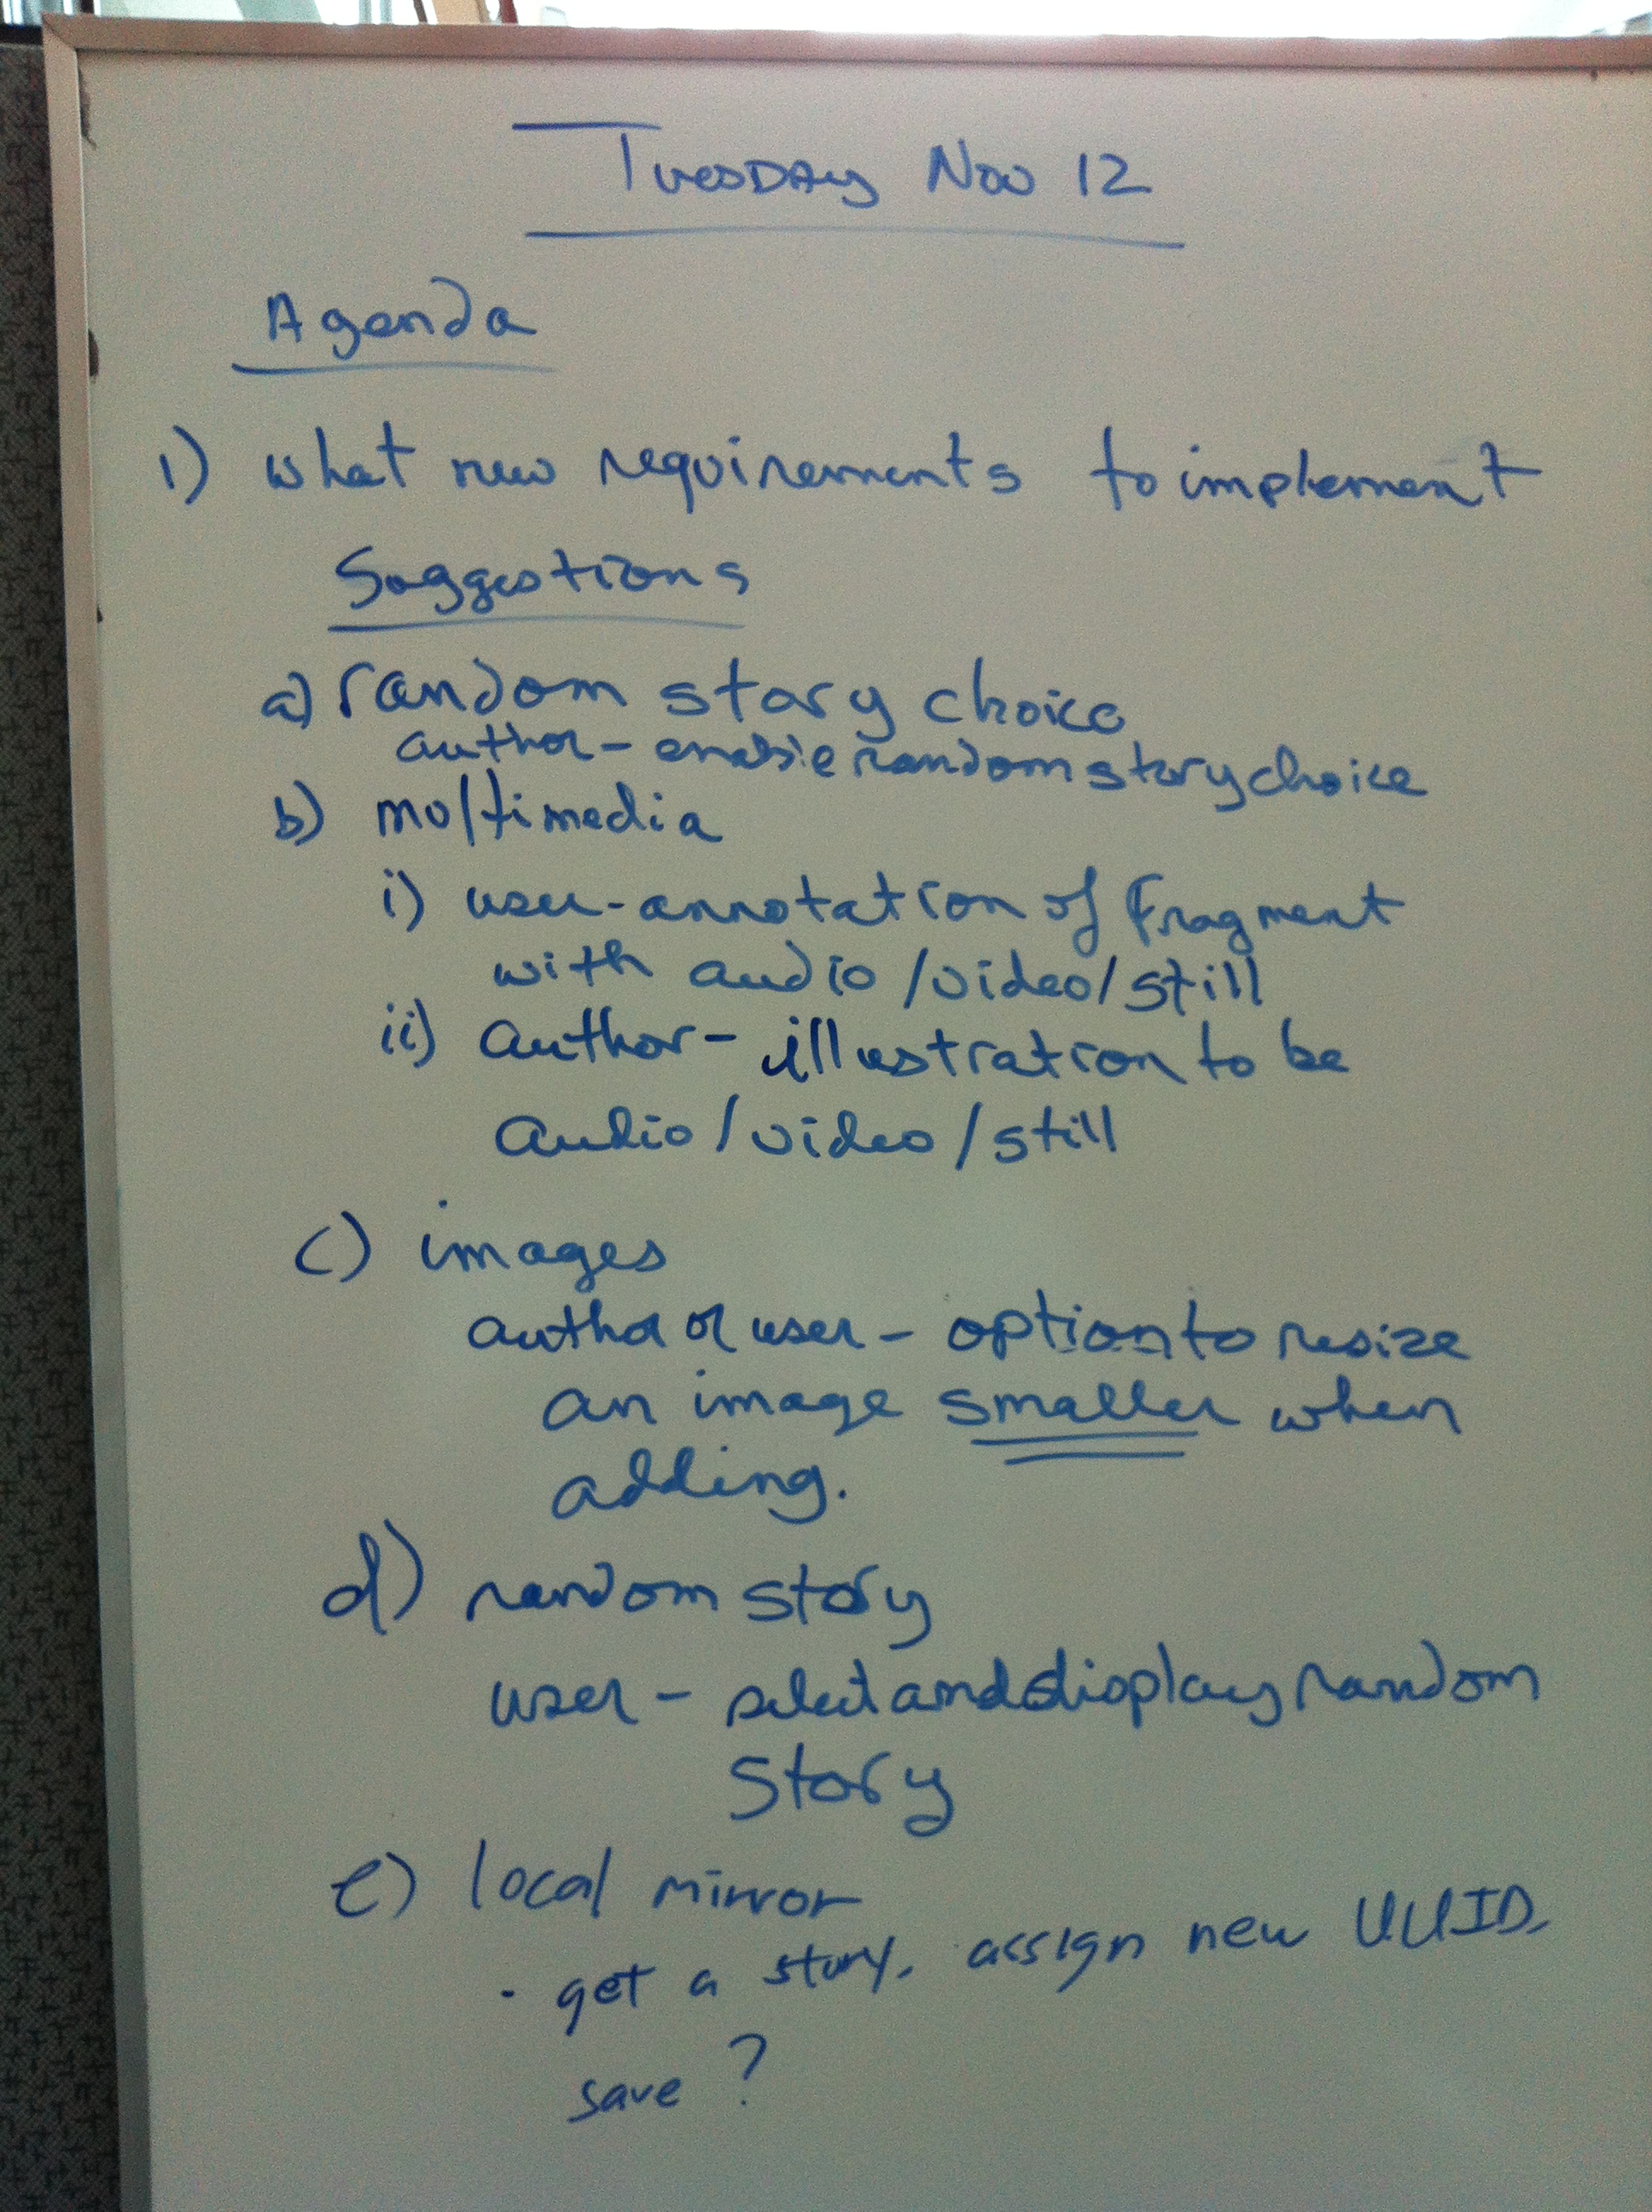 Tuesday Nov 12
Agenda
1) what new requirements to implement
Suggestions
a) random story choice
author - enable random story choice
b) multimedia
i) user - annotation of fragment
with audio / video / still
ii) author - illustration to be
audio / video / still
c) images
author or user - option to resize
an image smaller when
adding.
d) random story
user - select and display random
story
e) local mirror
- get a story, assign new UUID,
save ?